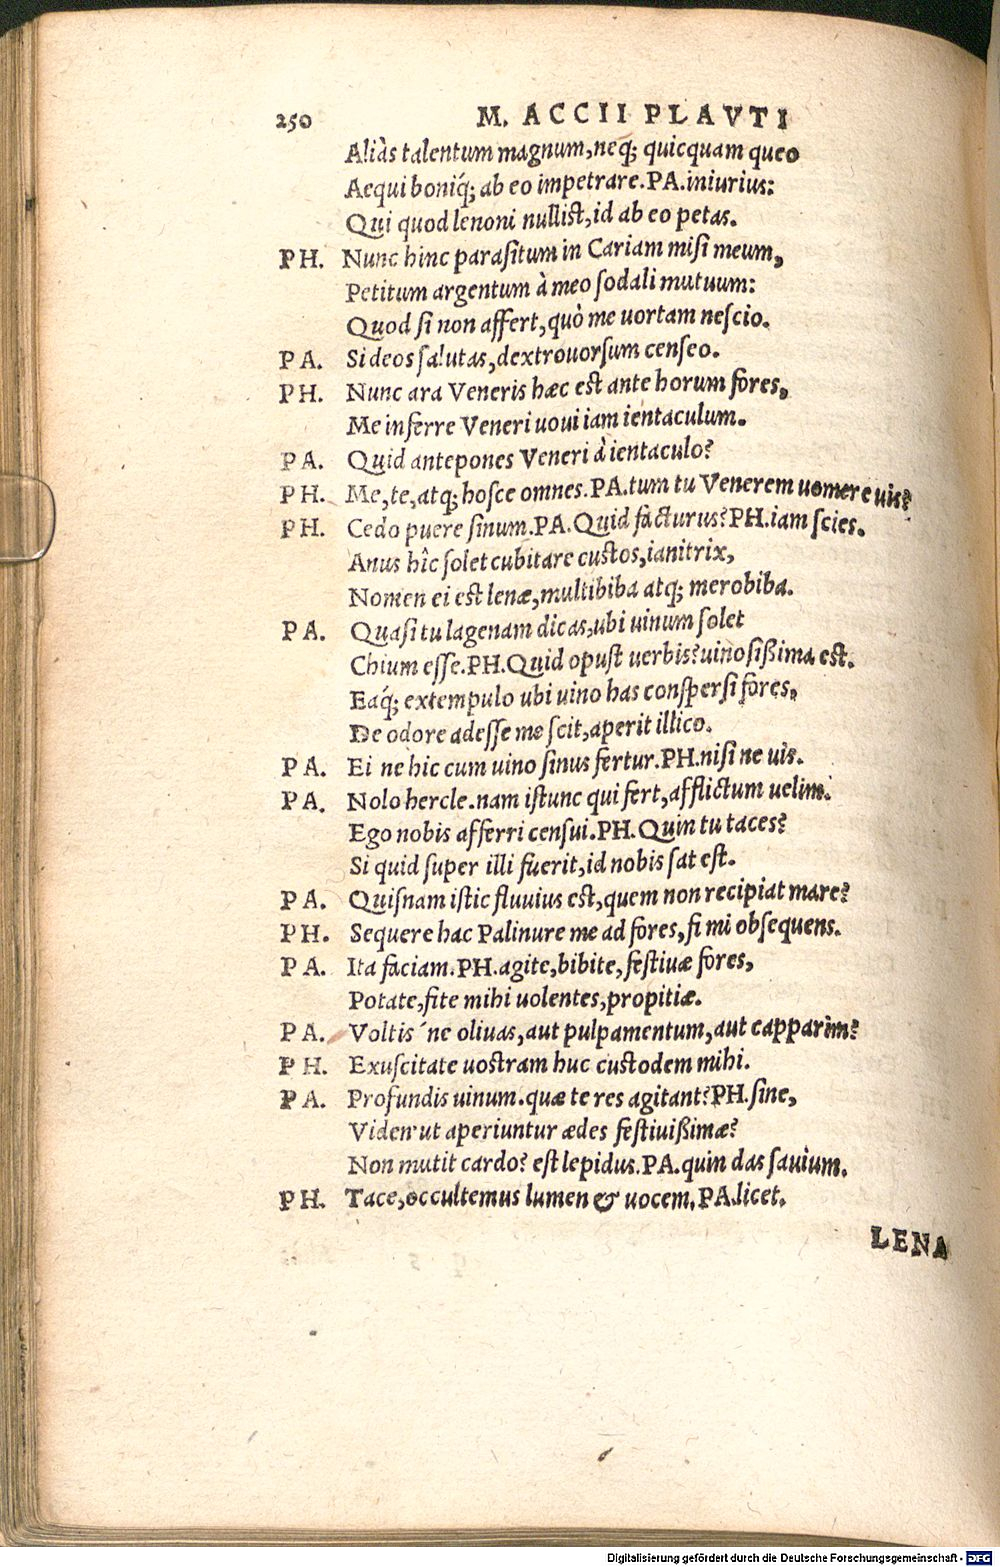 250 M. ACCII PLAVTI
Aliàs talentum magnum, neq; quicquam queo
Aequi boniq́; ab eo impetrare. PA. iniurius:
Qui quod lenoni nullist, id ab eo petas.
PH. Nunc hinc parasitum in Cariam misi meum,
Petitum argentum à meo sodali mutuum:
Quod si non affert, quò me uortam nescio.
PA. Si deos salutas, dextrouorsum censeo.
PH. Nunc ara Veneris hæc est ante horum fores,
Me inferre Veneri uoui iam ientaculum.
PA. Quid antepones Veneri à ientaculo?
PH. Me, te, atq; hosce omnes. PA. tum tu Venerem uomere uis?
PH. Cedo puere sinum. PA. Quid facturus? PH. iam scies.
Anus hîc solet cubitare custos, ianitrix,
Nomen ei est lenæ, multibiba atq; merobiba.
PA. Quasi tu lagenam dicas, ubi uinum solet
Chium esse. PH. Quid opust uerbis? uinosißima est.
Eaq́; extempulo ubi uino has conspersi fores,
De odore adesse me scit, aperit illico.
PA. Ei ne hic cum uino sinus fertur. PH. nisi ne uis.
PA. Nolo hercle. nam istunc qui fert, afflictum uelim.
Ego nobis afferri censui. PH. Quin tu taces?
Si quid super illi fuerit, id nobis sat est.
PA. Quisnam istic fluuius est, quem non recipiat mare?
PH. Sequere hac Palinure me ad fores, fi mi obsequens.
PA. Ita faciam. PH. agite, bibite, festiuæ fores,
Potate, fite mihi uolentes, propitiæ.
PA. Voltis'ne oliuas, aut pulpamentum, aut capparim?
PH. Exuscitate uostram huc custodem mihi.
PA. Profundis uinum. quæ te res agitant? PH. sine,
Viden'ut aperiuntur ædes festiuißimæ?
Non mutit cardo? est lepidus. PA. quin das sauium.
PH. Tace, occultemus lumen & uocem. PA. licet.
LENA
Digitalisierung gefördert durch die Deutsche Forschungsgemeinschaft - DFG